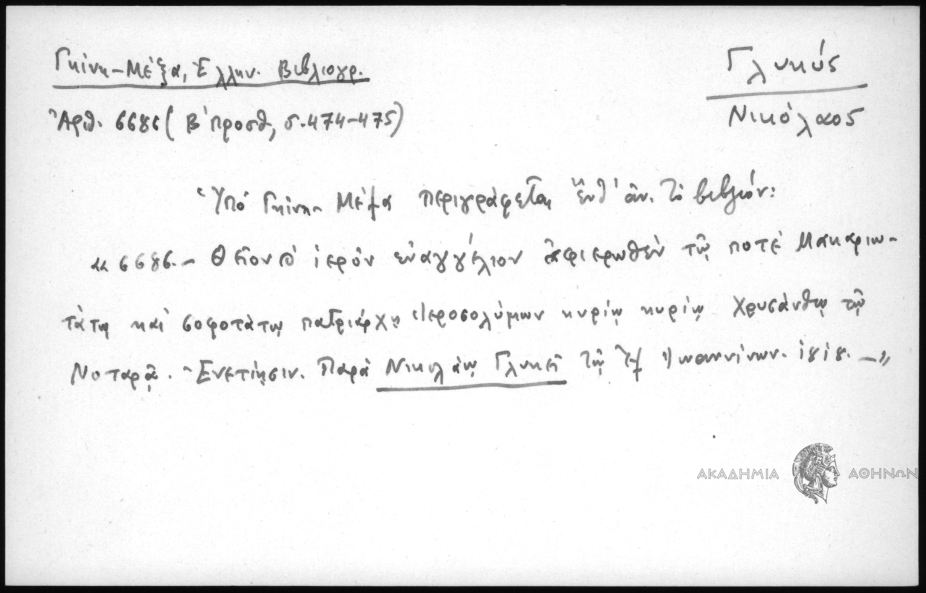 Γκίνη-Μέξα, Ἑλλην. Βιβλιογρ.
Γλυκύς
Νικόλαος
Ἀριθ. 6686 (Β΄ προσθ, σ. 474-475)
Ὑπό Γκίνη-Μέξα περιγράφεται ἔνθ' ἀν. τό βιβλίον:
« 6686. — Θεῖον καὶ ἱερόν εὐαγγέλιον ἀφιερωθέν τῷ ποτέ Μακαριω-
τάτῳ καί σοφοτάτῳ πατριάρχῃ Ἱεροσολύμων κυρίῳ κυρίῳ Χρυσάνθῳ τῷ
Νοταρᾷ. Ἐνετίῃσιν. Παρά Νικολάῳ Γλυκεῖ τῷ ἐξ Ἰωαννίνων. 1818. — »
ΑΚΑΔΗΜΙΑ ΑΘΗΝΩΝ